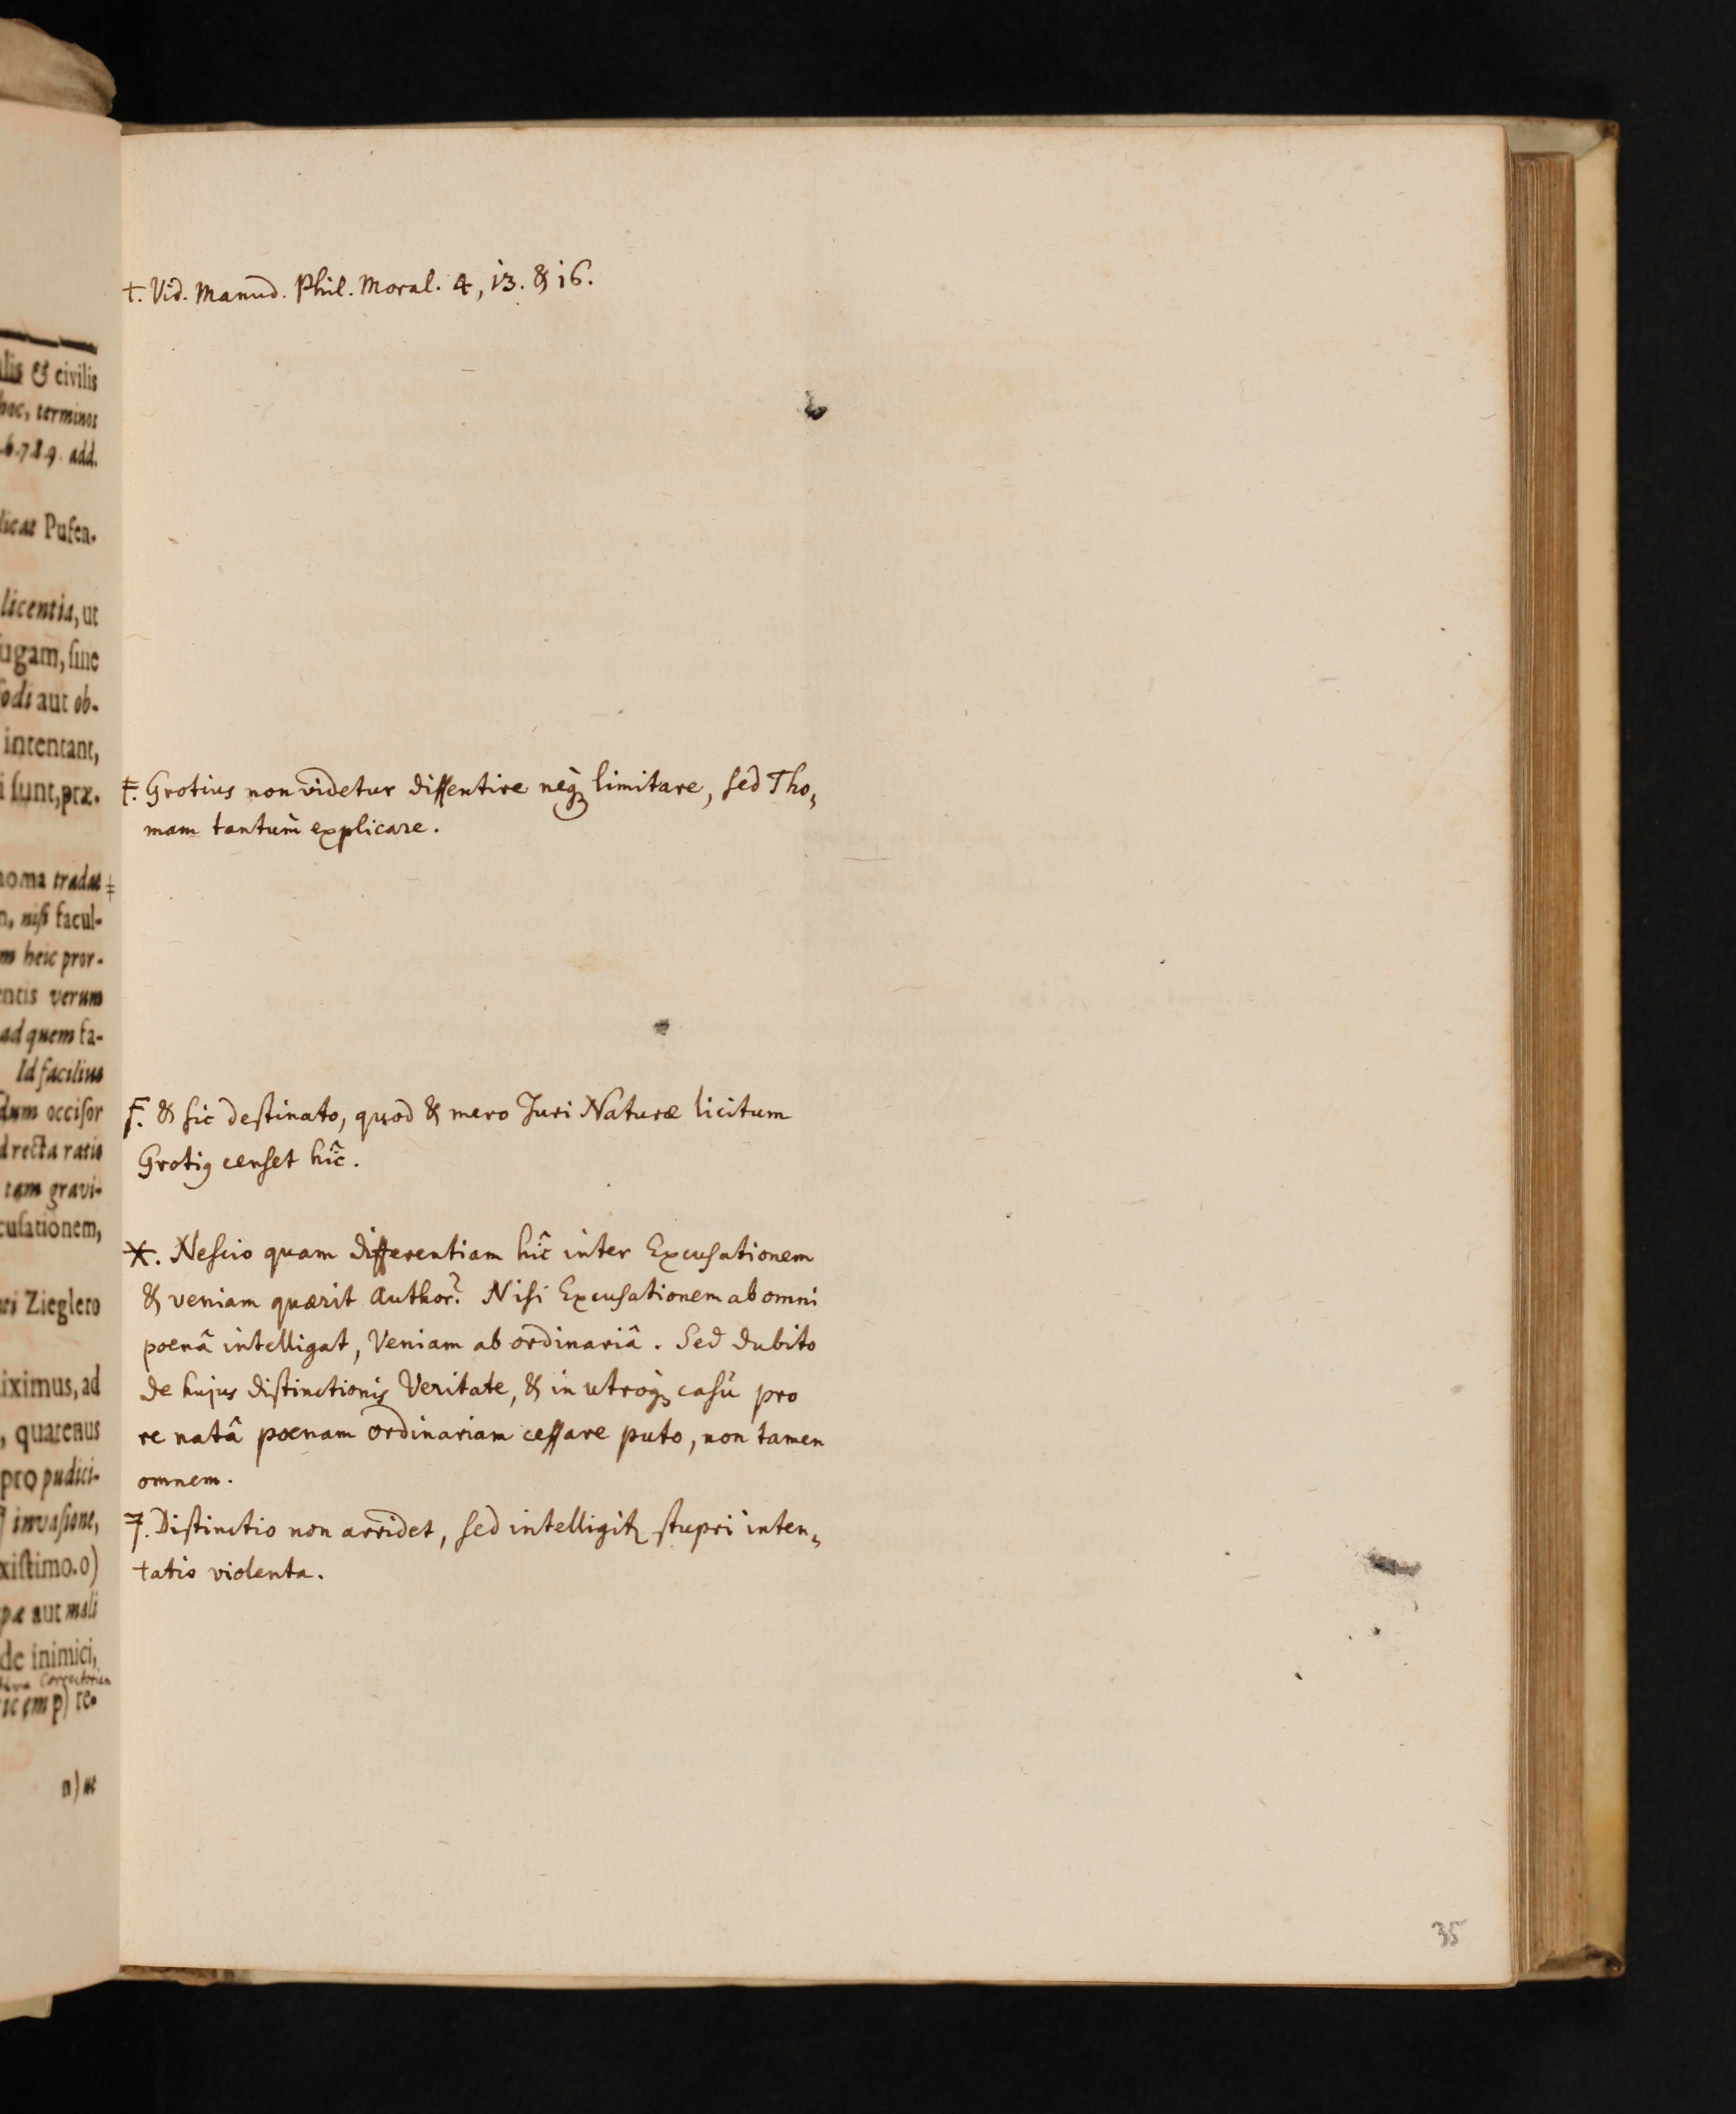 lis & civilis
hoc, terminos
.6.7.8.9. add.
licat Pufen-
licentia, ut
ugam, sine
aut ob-
intentant,
i sunt, præ-
homa tradat ‡
nisi facul-
heic pror-
entis verum
ad quem fa-
Id facilius
dum occisor
recta ratio
tam gravi-
cusationem,
Zieglero
iximus, ad
, quatenus
pro pudici-
invasione,
xistimo. o)
pæ aut mali
de inimici,
Correctorian
p) re-
n) ut
†. Vid. Manud. Phil. Moral. 4, 13. & 16.
‡. Grotius non videtur dissentire neq; limitare, sed Tho-
mam tantùm explicare.
F. & sic destinato, quod & mero Juri Naturæ licitum
Grotiꝰ censet hîc.
X. Nescio quam differentiam hîc inter Excusationem
& veniam quærit Author? Nisi Excusationem ab omni
poenâ intelligat, Veniam ab ordinariâ. Sed dubito
de hujus distinctionis Veritate, & in utroq; casu pro
re natâ poenam ordinariam cessare puto, non tamen
omnem.
7. Distinctio non arridet, sed intelligitꝛ stupri inten-
tatio violenta.
35